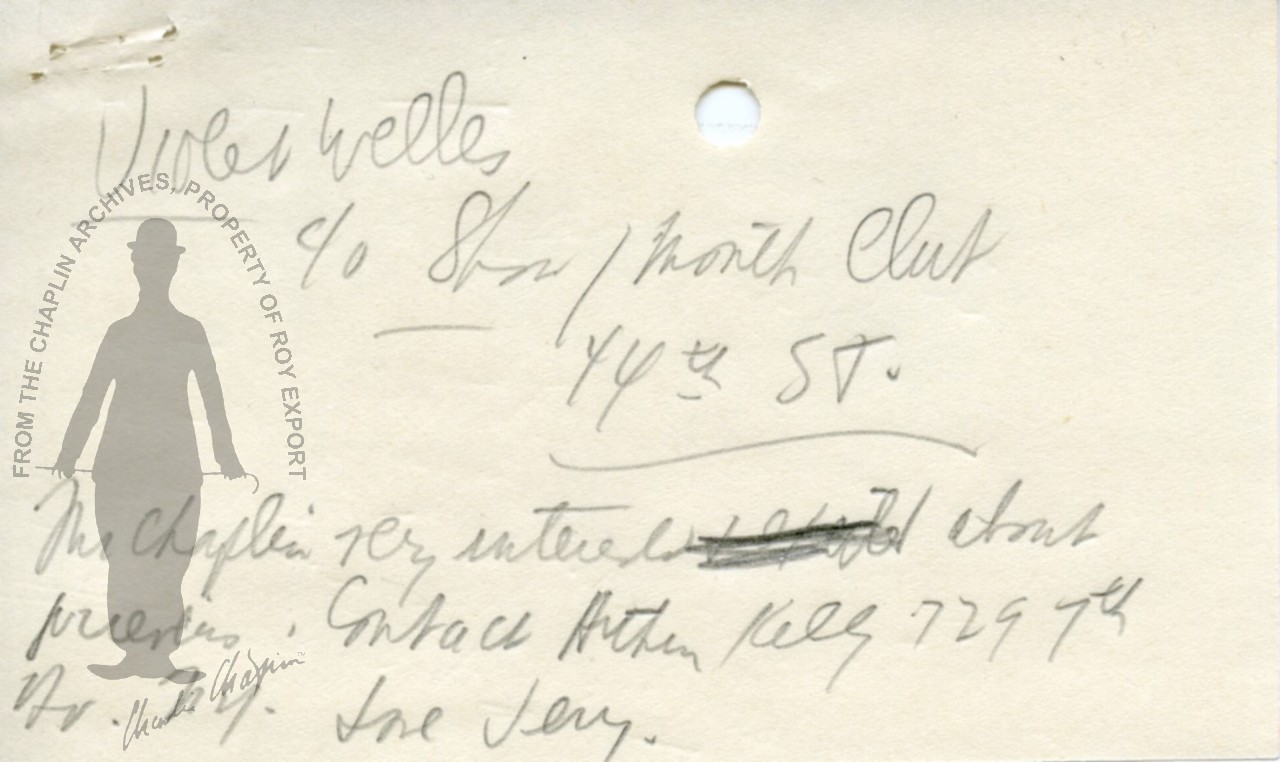 Violet Welles
c/o Show / Month Club
44th ST.
Mr Chaplin very interested about
previews. Contact Arthur Kelly 729 7th
Av. N.Y. Love Jerry.
FROM THE CHAPLIN ARCHIVES, PROPERTY OF ROY EXPORT
Charlie Chaplin